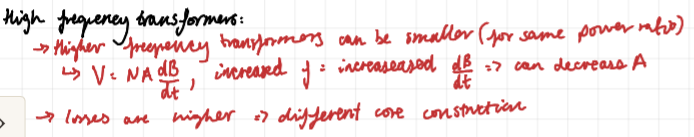 High frequency transformers:
→ Higher frequency transformers can be smaller (for same power ratio)
↳ V = NA dB/dt, increased f = increaseased dB/dt => can decrease A
→ losses are higher => different core construction